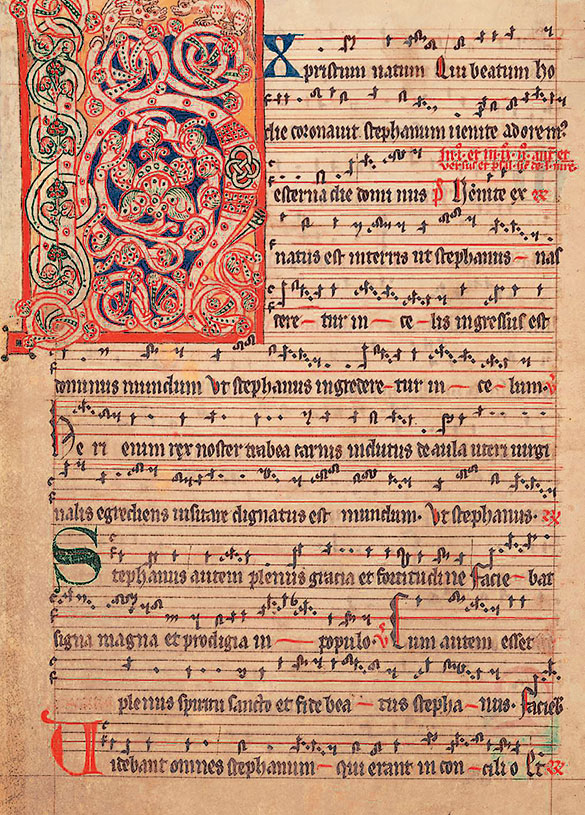 Xpristum natum Qui beatum ho
die coronavit stephanum uenite adorem9
esterna die domi nus p̄ Uenite ex
natus est in terris ut stephanus nas
cere tur in ce lis ingressus est
dominus mundum Ut stephanus ingredere tur in ce lum
he ri enim rex noster trabea carnis indutus de aula uteri uirgi
nalis egrediens uisitare dignatus est mundum. Ut stephanus.
Stephanus autem plenus gracia et fortitudine facie bat
signa magna et prodigia in populo. Cum autem esset
plenus spiritu sancto et fide bea tus stepha nus. facieb
Uidebant omnes stephanum qui erant in con cili o Et